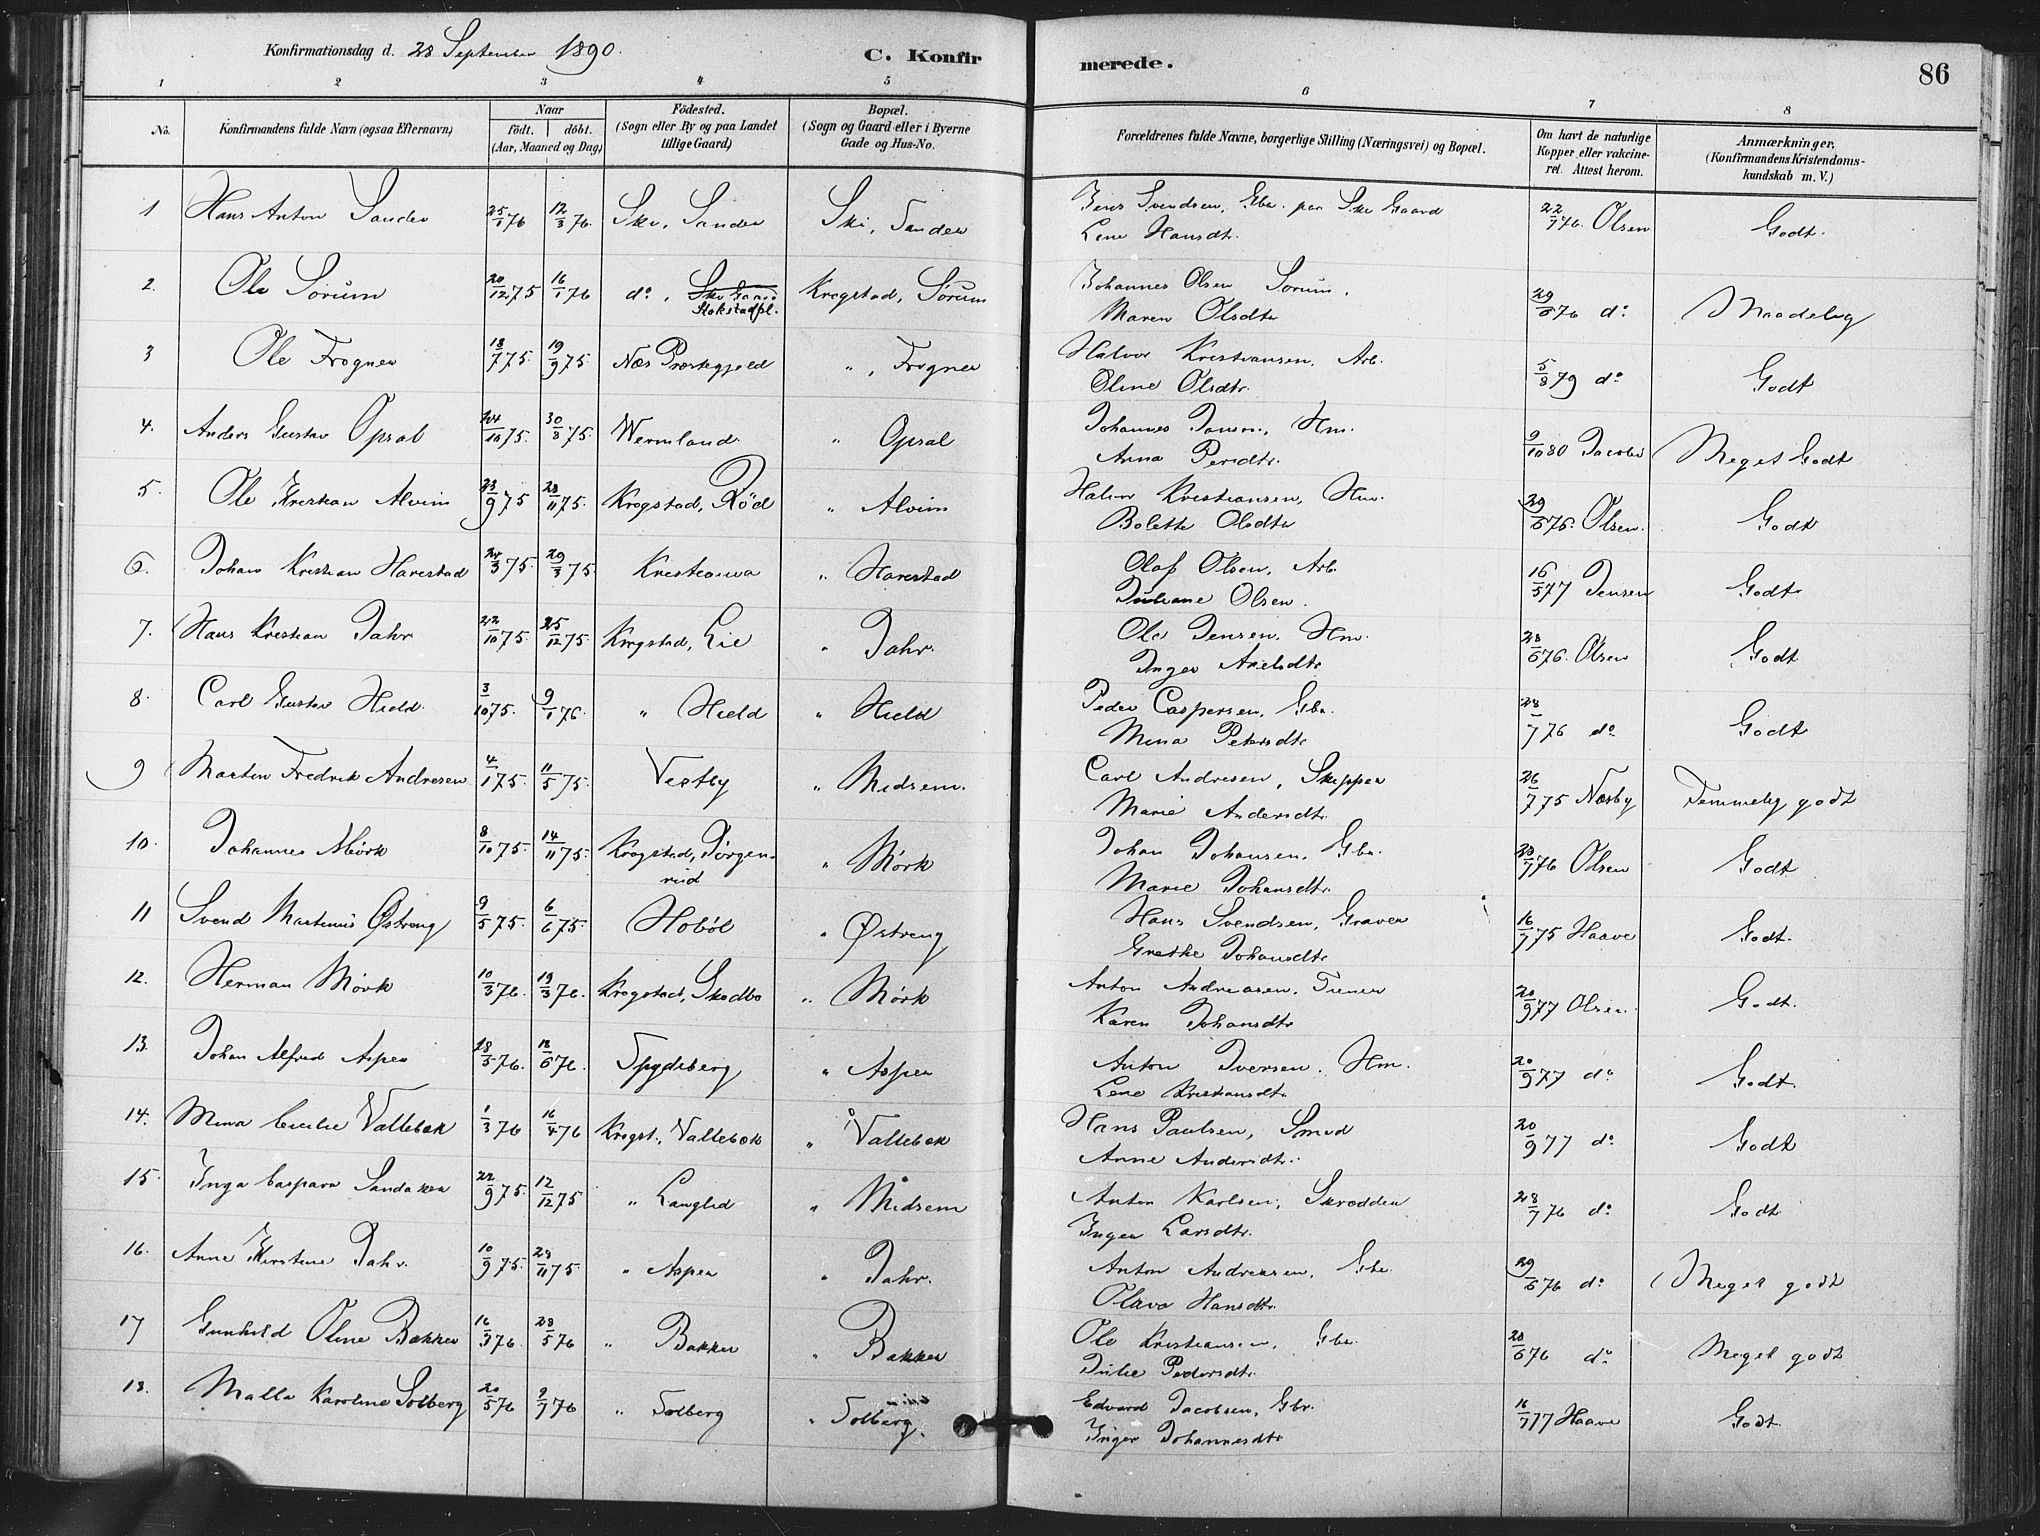 Konfirmationsdag d. 28 September 1890.
C. Konfirmerede.
86
1 2 3 4 5 6 7 8
No.
Konfirmandens fulde Navn (ogsaa Efternavn)
Naar
födt. döbt.
(Aar, Maaned og Dag)
Födested.
(Sogn eller By og paa Landet
tillige Gaard)
Bopæl.
(Sogn og Gaard eller i Byerne
Gade og Hus-No.
Forældrenes fulde Navne, borgerlige Stilling (Næringsvei) og Bopæl.
Om havt de naturlige
Kopper eller vakcine-
ret. Attest herom.
Anmærkninger.
(Konfirmandens Kristendoms-
kundskab m. V.)
1 Hans Anton Sander 25/1 76 12/3 76. Ski, Sander Ski, Sander Jens Svendsen, Gbr. paa Ski Gaard 22/7 76. Olsen Godt.
Lene Hansdtr.
2. Ole Sørum 20/12 75 16/1 76 do, Ski Gaard Krogstad, Sørum Johannes Olsen Sørum. 29/6 76 do Maadelig
Stokstadpl. Maren Olsdtr
3 Ole Frogner 18/7 75. 19/9 75. Næs Præstegjeld ", Frogner Halvor Kristiansen, Arb. 5/8 79 do Godt
Oline Olsdtr.
4. Anders Gustav Opsal 24/10 75. 30/8 75. Wermland. " Opsal Johannes Jonson, Hm. 9/10 80 Jacobs Meget Godt
Anna Persdtr.
5. Ole Kristian Alvim 23/9 75 28/11 75. Krogstad, Röd " Alvim Halvor Kristiansen, Hm. 29/6 76. Olsen. Godt
Bolette Olsdtr
6. Johan Kristian Harestad 24/3 75. 29/3 75. Kristiania " Harestad Olaf Olsen, Arb. 16/5 77 Jensen Godt
Juliane Olsen.
7. Hans Kristian Dahr 22/10 75. 25/12 75 Krogstad, Lie " Dahr. Ole Jensen, Hm. 28/6 76. Olsen Godt
Inger Axelsdtr
8. Carl Gustav Hield. 3/10 75. 9/1 76. " Hield " Hield Peder Caspersen, Gbr. 28/7 76 do Godt
Mina Petersdtr
9 Martin Fredrik Andresen 4/1 75. 11/5 75. Vestby " Midsem. Carl Andresen, Skipper 26/7 75 Næsby Temmelig godt
Marie Andersdtr.
10. Johannes Mörk 8/10 75. 14/11 75. Krogstad, Jörgen- " Mörk Johan Johansen, Gbr. 28/7 76 Olsen Godt
rud Marie Johansdtr.
11 Svend Martinius Østreng 9/5 75. 6/6 75. Hobøl " Østreng Hans Svendsen, Graver 16/7 75 Haave Godt.
Grethe Johansdtr
12. Herman Mörk 10/3 76. 19/3 76. Krogstad, Skodbo " Mörk Anton Andreasen, Tiener 20/9 77 Olsen. Godt.
Karen Johansdtr
13. Johan Alfred Asper 28/5 76. 18/6 76. Spydeberg " Asper Anton Iversen, Hm. 20/9 77 do Godt.
Lene Kristiansdtr.
14. Mina Cecilie Vallebæk 1/3 76 16/4 76 Krogst., Vallebæk " Vallebæk Hans Paulsen, Smed 20/9 77 do Godt
Anne Andersdtr.
15. Inga Caspara Sandaker 22/9 75. 12/12 75 " Langlid " Midsem Anton Karlsen, Skrædder 28/7 76 do Godt
Inger Larsdtr.
16. Anne Kirstine Dahr. 10/9 75. 28/11 75 " Asper " Dahr. Anton Andresen, Gbr. 29/6 76 do Meget godt
Olava Hansdtr.
17 Gunhild Oline Bakker 16/3 76. 28/5 76 " Bakker " Bakker Ole Kristiansen, Gbr. 28/6 76 do Meget godt
Julie Pedersdtr.
18. Malla Karoline Solberg 20/5 76 9/7 76 " Solberg " Solberg. Edvard Jacobsen, Gbr. 16/7 77 Haave Godt.
Inger Johannesdtr